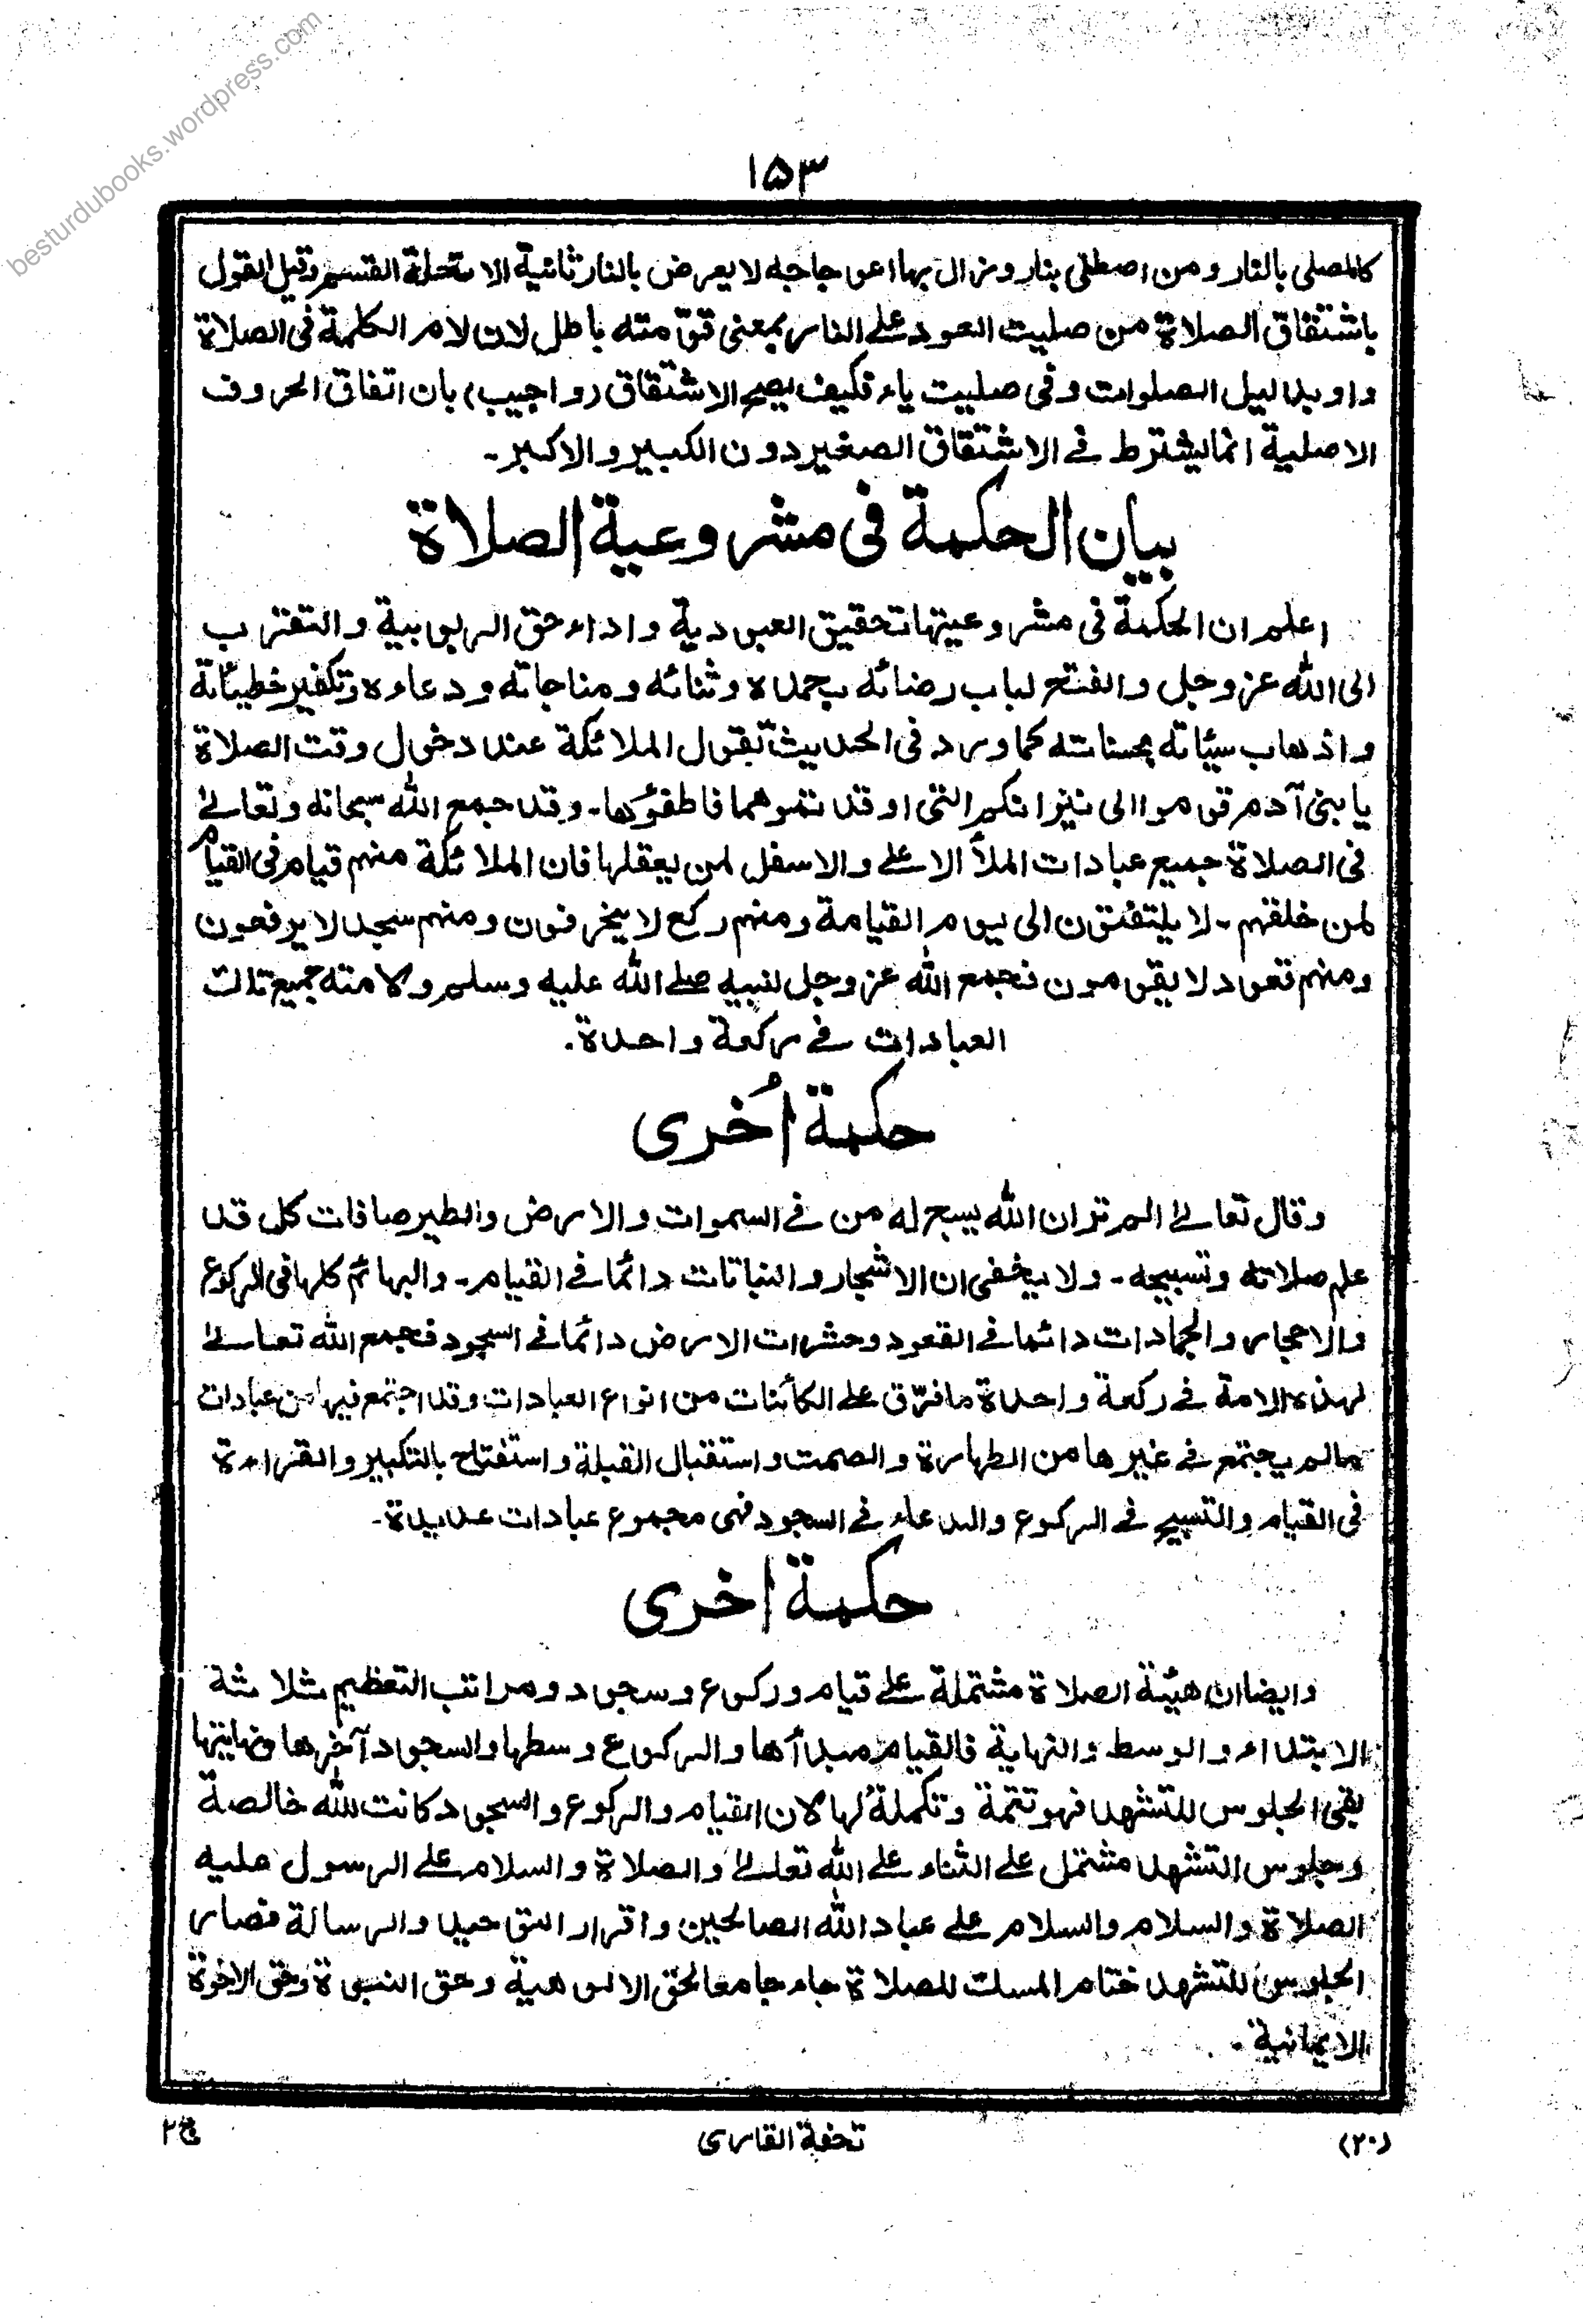 besturdubooks.wordpress.com
١٥٣
كالمصلى بالنار ومن اصطلى بنار وزال بها اعوجاجه لا يعرض بالنار ثانية الا تحلة القسم وقيل القول
باشتقاق الصلاة من صليت العود على النار بمعنى قوّمته باطل لان لام الكلمة فى الصلاة
واو بدليل الصلوات وفى صليت ياء فكيف يصح الاشتقاق (واجيب) بان اتفاق الحروف
الاصلية انما يشترط فى الاشتقاق الصغير دون الكبير والاكبر۔
بيان الحكمة فى مشروعية الصلاة
اعلم ان الحكمة فى مشروعيتها تحقيق العبودية واداء حق الربوبية والتقرب
الى الله عز وجل والفتح لباب رضائه بحمده وثنائه ومناجاته ودعاءه وتكفير خطيئاته
واذهاب سيئاته بحسناته كما ورد فى الحديث تقول الملائكة عند دخول وقت الصلاة
يا بنى آدم قوموا الى نيرانكم التى اوقدتموهما فاطفؤكها۔ وقد جمع الله سبحانه وتعالى
فى الصلاة جميع عبادات الملأ الاعلى والاسفل لمن يعقلها فان الملائكة منهم قيام فى القيام
لمن خلقهم۔ لا يلتفتون الى يوم القيامة ومنهم ركع لا ينحرفون ومنهم سجد لا يرفعون
ومنهم قعود لا يقومون فجمع الله عز وجل لنبيه صلى الله عليه وسلم ولامته جميع تلك
العبادات فى ركعة واحدة۔
حكمة اُخرى
وقال تعالى الم تر ان الله يسبح له من فى السموات والارض والطير صافات كل قد
علم صلاته وتسبيحه۔ ولا يخفى ان الاشجار والنباتات دائما فى القيام۔ والبهائم كلها فى الركوع
والاحجار والجمادات دائما فى القعود وحشرات الارض دائما فى السجود فجمع الله تعالى
لهذه الامة فى ركعة واحدة ما فرّق على الكائنات من انواع العبادات وقد اجتمع فيها من عبادات
مالم يجتمع فى غيرها من الطهارة والصمت واستقبال القبلة واستفتاح بالتكبير والقراءة
فى القيام والتسبيح فى الركوع والدعاء فى السجود فهى مجموع عبادات عديدة۔
حكمة اخرى
وايضا ان هيئة الصلاة مشتملة على قيام وركوع وسجود ومراتب التعظيم ثلاثة
الابتداء والوسط والنهاية فالقيام مبدأها والركوع وسطها والسجود آخرها ونهايتها
بقى الجلوس للتشهد فهو تتمة وتكملة لها لان القيام والركوع والسجود كانت لله خالصة
وجلوس التشهد مشتمل على الثناء على الله تعالى والصلاة والسلام على الرسول عليه
الصلاة والسلام والسلام على عباد الله الصالحين واقرار التوحيد والرسالة فصار
الجلوس للتشهد ختام المسك للصلاة جاء جامعا لحق الالوهية وحق النبوة وحق الاخوة
الايمانية۔
(٢٠)
تحفة القارى
ج٢